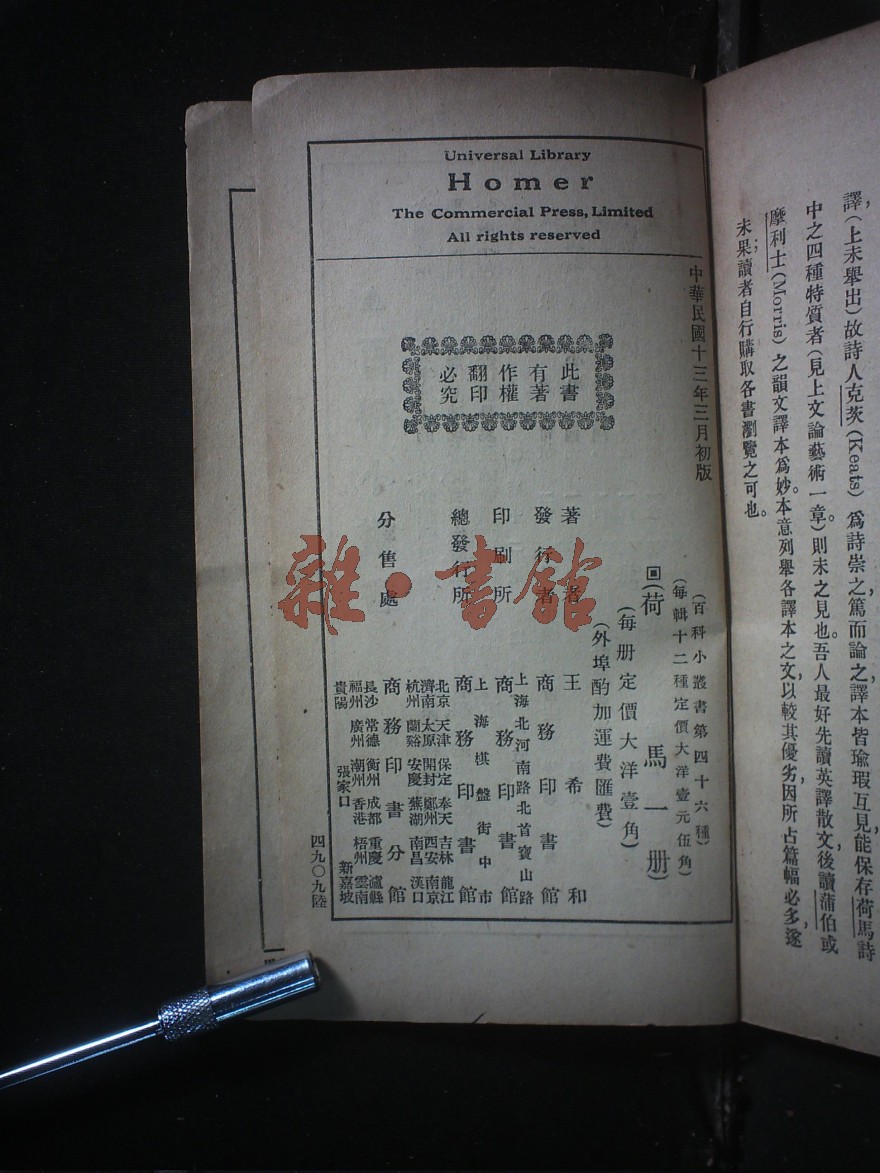 譯,(上未舉出)故詩人克茨(Keats)爲詩崇之篤而論之譯本皆瑜瑕互見,能保存荷馬詩
中之四種特質者(見上文論藝術一章)則未之見也。吾人最好先讀英譯散文,後讀蒲伯或
摩利士(Morris)之韻文譯本爲妙。本意列舉各譯本之文,以較其優劣,因所占篇幅必多,遂
未果;讀者自行購取各書瀏覽之可也。
Universal Library
Homer
The Commercial Press, Limited
All rights reserved
中華民國十三年三月初版
此書
有著
作權
翻印
必究
(百科小叢書第四十六種)
(每輯十二種定價大洋壹元伍角)
回(荷馬一册)
(每册定價大洋壹角)
(外埠酌加運費匯費)
著者 王希和
發行者 商務印書館
印刷所 上海北河南路北首寶山路
商務印書館
總發行所 上海棋盤街中市
商務印書館
分售處 商務印書分館
北京 天津 保定 奉天 吉林 龍江
濟南 太原 開封 鄭州 西安 南京
杭州 蘭谿 安慶 蕪湖 南昌 漢口
長沙 常德 衡州 成都 重慶 瀘縣
福州 廣州 潮州 香港 梧州 雲南
貴陽 張家口 新嘉坡
四九〇九陸
雜·書館